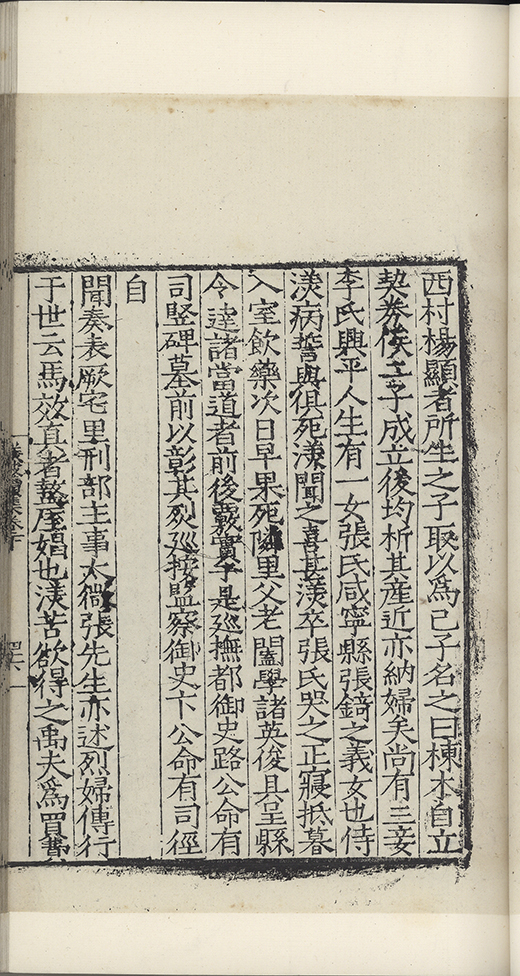 西村楊顯者所生之子取以爲己子名之曰棟木自立
契券俟二子成立後均析其產近亦納婦矣尚有三妾
李氏興平人生有一女張氏咸寧縣張錡之義女也侍
渼病誓與俱死渼聞之喜甚渼卒張氏哭之正寢抵暮
入室飲藥次日早果死隣里父老闔學諸英俊具呈縣
令達諸當道者前後覈實于是廵撫都御史路公命有
司豎碑墓前以彰其烈廵按監察御史卞公命有司徑
自
聞奏表厥宅里刑部主事太微張先生亦述烈婦傳行
于世云馬效直者盩厔娼也渼苦欲得之禹夫爲買書